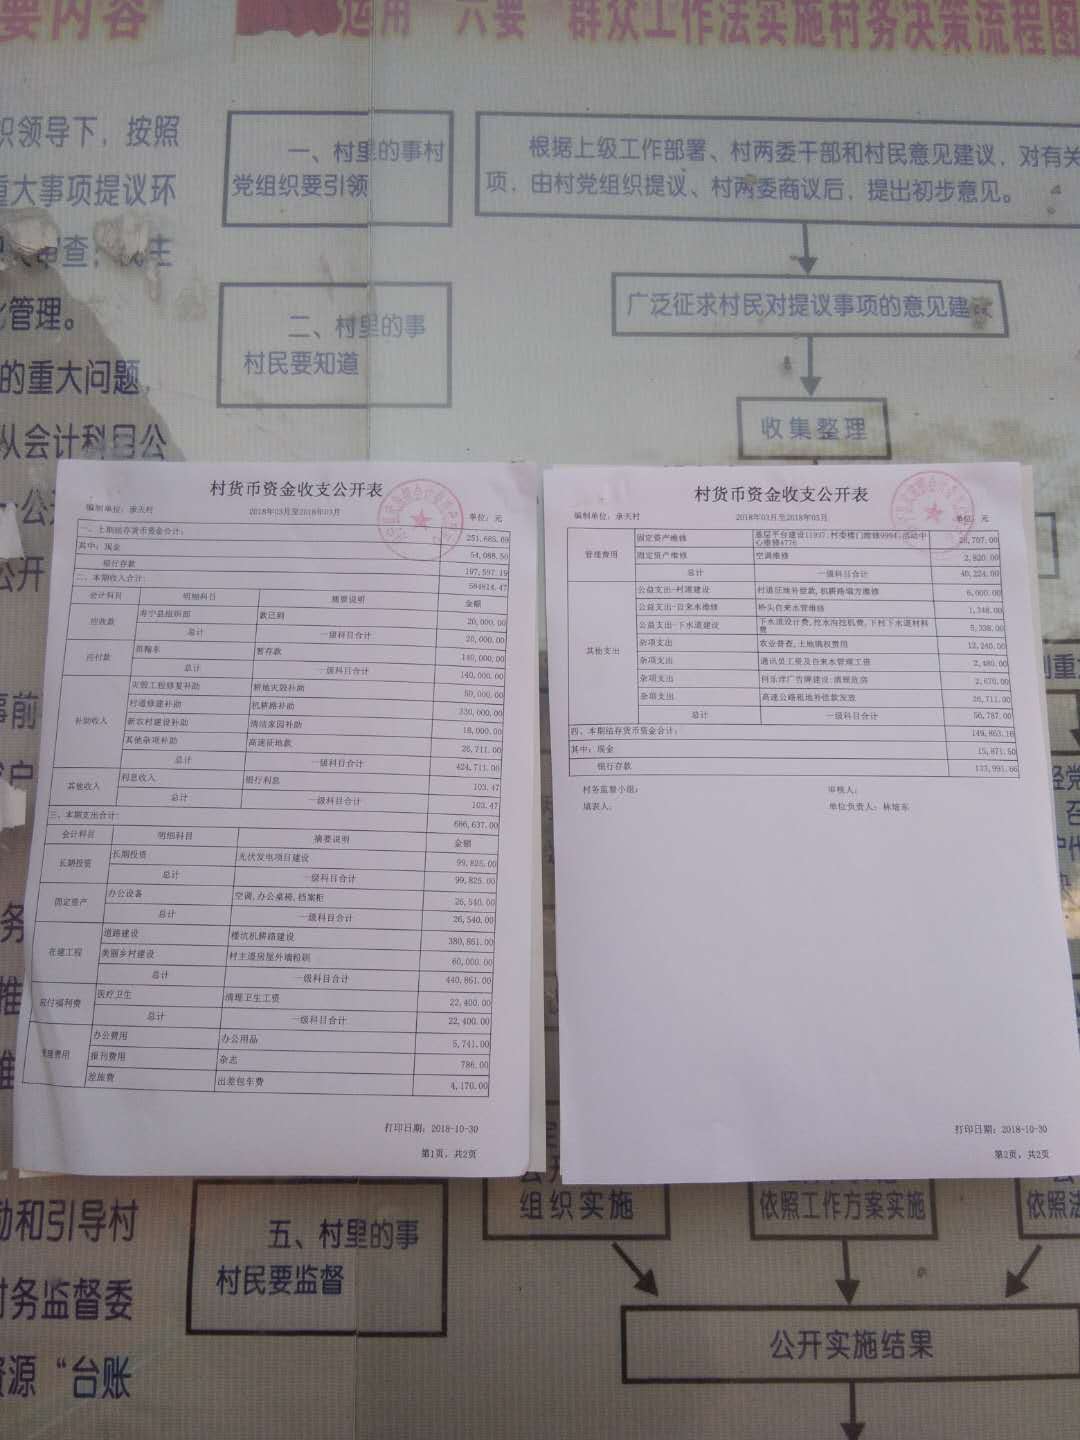 要内容
运用“六要”群众工作法实施村务决策流程图
织领导下，按照
重大事项提议环
审查，
管理。
的重大问题，
从会计科目公
一、村里的事村
党组织要引领
根据上级工作部署、村两委干部和村民意见建议，对有关
项，由村党组织提议、村两委商议后，提出初步意见。
二、村里的事
村民要知道
广泛征求村民对提议事项的意见建
收集整理
村货币资金收支公开表
编制单位：承天村 2018年03月至2018年03月 单位：元
一、上期结存货币资金合计： 251,685.69
其中：现金 54,088.50
银行存款 197,597.19
二、本期收入合计： 584814.47
会计科目 明细科目 摘要说明 金额
应收款 寿宁县组织部 款已到 20,000.00
总计 一级科目合计 20,000.00
应付款 暂存款 140,000.00
总计 一级科目合计 140,000.00
补助收入 灾毁工程修复补助 耕地灾毁补助 50,000.00
村道修建补助 机耕路补助 330,000.00
新农村建设补助 清洁家园补助 18,000.00
其他杂项补助 高速征地款 26,711.00
总计 一级科目合计 424,711.00
其他收入 利息收入 银行利息 103.47
总计 一级科目合计 103.47
三、本期支出合计： 686,637.00
会计科目 明细科目 摘要说明 金额
长期投资 长期投资 光伏发电项目建设 99,825.00
总计 一级科目合计 99,825.00
固定资产 办公设备 空调,办公桌椅,档案柜 26,540.00
总计 一级科目合计 26,540.00
在建工程 道路建设 楼坑机耕路建设 380,861.00
美丽乡村建设 村主道房屋外墙粉刷 60,000.00
总计 一级科目合计 440,861.00
应付福利费 医疗卫生 清理卫生工资 22,400.00
总计 一级科目合计 22,400.00
管理费用 办公费用 办公用品 5,741.00
报刊费用 杂志 786.00
差旅费 出差包车费 4,170.00
打印日期：2018-10-30
第1页，共2页
村货币资金收支公开表
编制单位：承天村 2018年03月至2018年03月 单位：元
管理费用 固定资产维修 基层平台建设11937,村委楼门维修9994,活动中心维修4776 26,707.00
固定资产维修 空调维修 2,820.00
总计 一级科目合计 40,224.00
其他支出 公益支出-村道建设 村道征地补偿款,机耕路塌方维修 6,000.00
公益支出-自来水维修 桥头自来水管维修 1,348.00
公益支出-下水道建设 下水道设计费,挖水沟挖机费,下村下水道材料费 5,338.00
杂项支出 农业普查,土地确权费用 12,240.00
杂项支出 通讯员工资及自来水管理工资 2,480.00
杂项支出 广告牌建设.清理危房 2,670.00
杂项支出 高速公路租地补偿款发放 26,711.00
总计 一级科目合计 56,787.00
四、本期结存货币资金合计： 149,863.16
其中：现金 15,871.50
银行存款 133,991.66
村务监督小组： 审核人：
填表人： 单位负责人：林培东
打印日期：2018-10-30
第2页，共2页
组织实施
依照工作方案实施
依照法
五、村里的事
村民要监督
和引导村
务监督委
资源“台账
公开实施结果